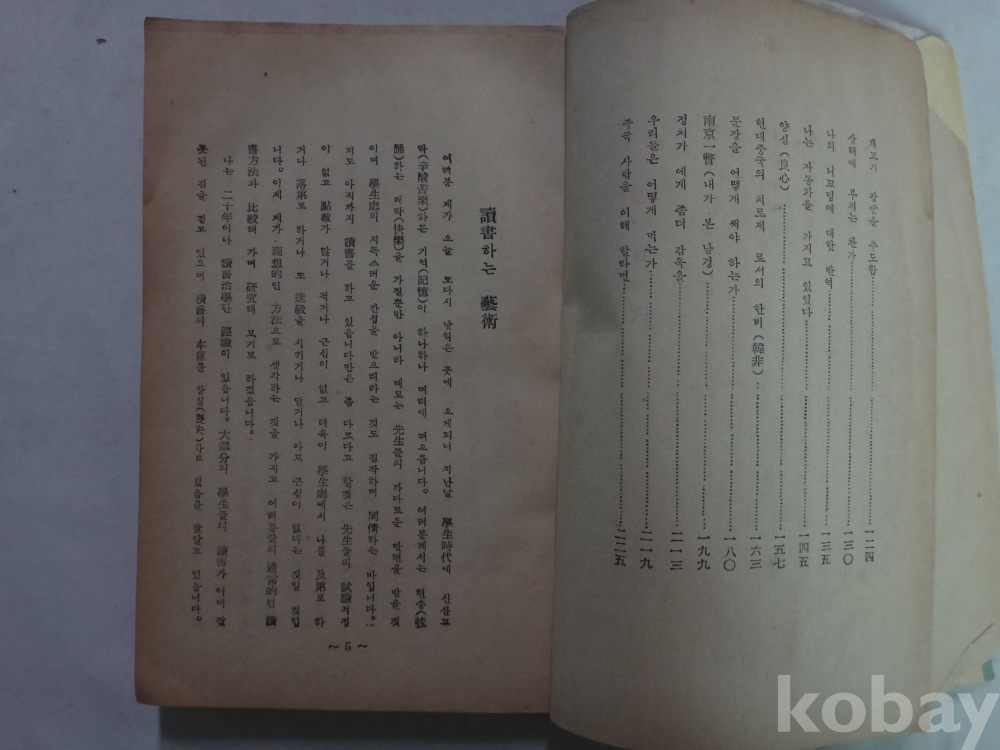 개고기 장군을 추도함………一二四
상해에 부치는 찬가………一三〇
나의 니꼬띵에 대한 반역………一三五
나는 자동차를 가지고 있었다………一四五
양심(良心)………一五七
현대중국의 치료제 로서의 한비(韓非)………一六三
문장을 어떻게 써야 하는가………一八〇
南京一瞥(내가 본 남경)………一九九
정치가 에게 좀더 감옥을………二一三
우리들은 어떻게 먹는가………二一九
중국 사람을 이해 할라면………二二五
讀書하는 藝術
여러분 제가 오늘 또다시 낯익은 곳에 오게되니 지난날 學生時代에 신산고
락(辛酸苦樂)하든 기억(記憶)이 하나하나 머리에 떠오릅니다. 여러분께서는 현송(弦
誦)하는 쾌락(快樂)을 가질뿐만 아니라 때로는 先生들의 까다로운 만면을 받을 것
이며 學生處의 지독스러운 간섭을 받으리라는 것도 짐작하며 同情하는 바입니다.
저도 아직까지 讀書를 하고 있읍니다만은 좀 다르다고 할것은 先生들의 試驗걱정
이 없고 點數가 많거나 적거나 근심이 없고 더욱이 學生處에서 나를 及第로 하
거나 落第로 하거나 또 進級을 시키거나 말거나 아모 근심이 없다는 것일 것입
니다. 이제 제가 理想的인 方法으로 생각하는 것을 가지고 여러분들의 通常的인 讀
書方法과 比較해 가며 研究해 보기로 하겠읍니다.
나는 二十年이나 讀書治學한 經驗이 있읍니다. 大部分의 學生들의 讀書가 이미 잘
못된 길을 걷고 있으며 讀書의 本意를 상실(喪失)하고 있음을 잘알고 있읍니다.
~ 5 ~
kobay